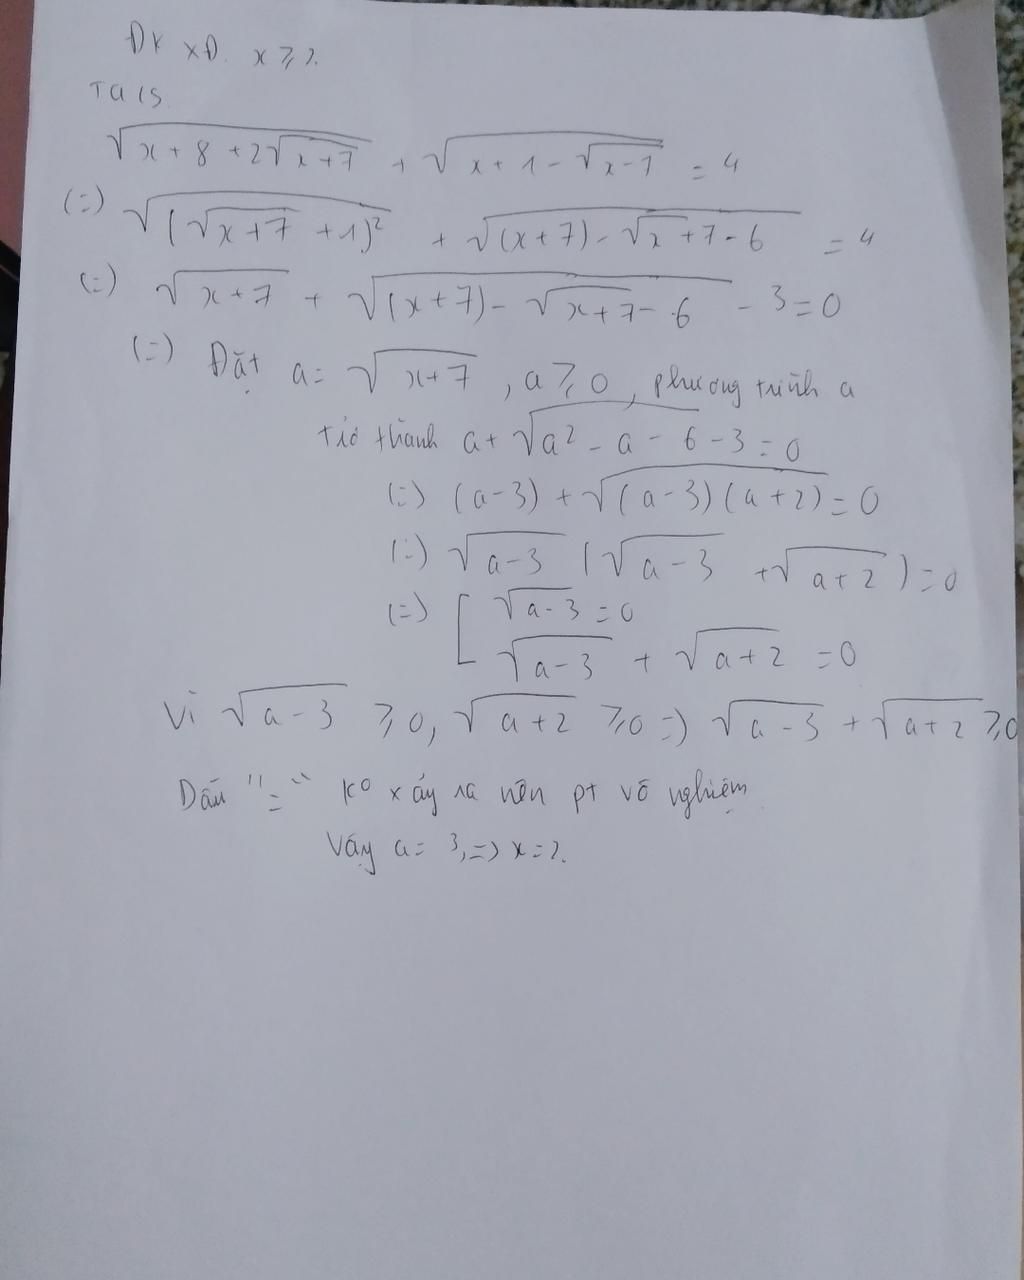 ĐK XĐ. x ≥ 2.
Ta có
√(x + 8 + 2√(x+7)) + √(x + 1 - √(x-7)) = 4
(=) √((√(x+7) + 1)²) + √((x+7) - √x+7 - 6) = 4
(=) √(x+7) + √((x+7) - √(x+7) - 6) - 3 = 0
(=) Đặt a = √(x+7), a ≥ 0, phương trình a
trở thành a + √(a² - a - 6) - 3 = 0
(=) (a-3) + √((a-3)(a+2)) = 0
(=) √(a-3) (√(a-3) + √(a+2)) = 0
(=) [ √(a-3) = 0
√(a-3) + √(a+2) = 0
Vì √(a-3) ≥ 0, √(a+2) ≥ 0 =) √(a-3) + √(a+2) ≥ 0
Dấu "=" ko xảy ra nên pt vô nghiệm
Vậy a = 3, => x = 2.